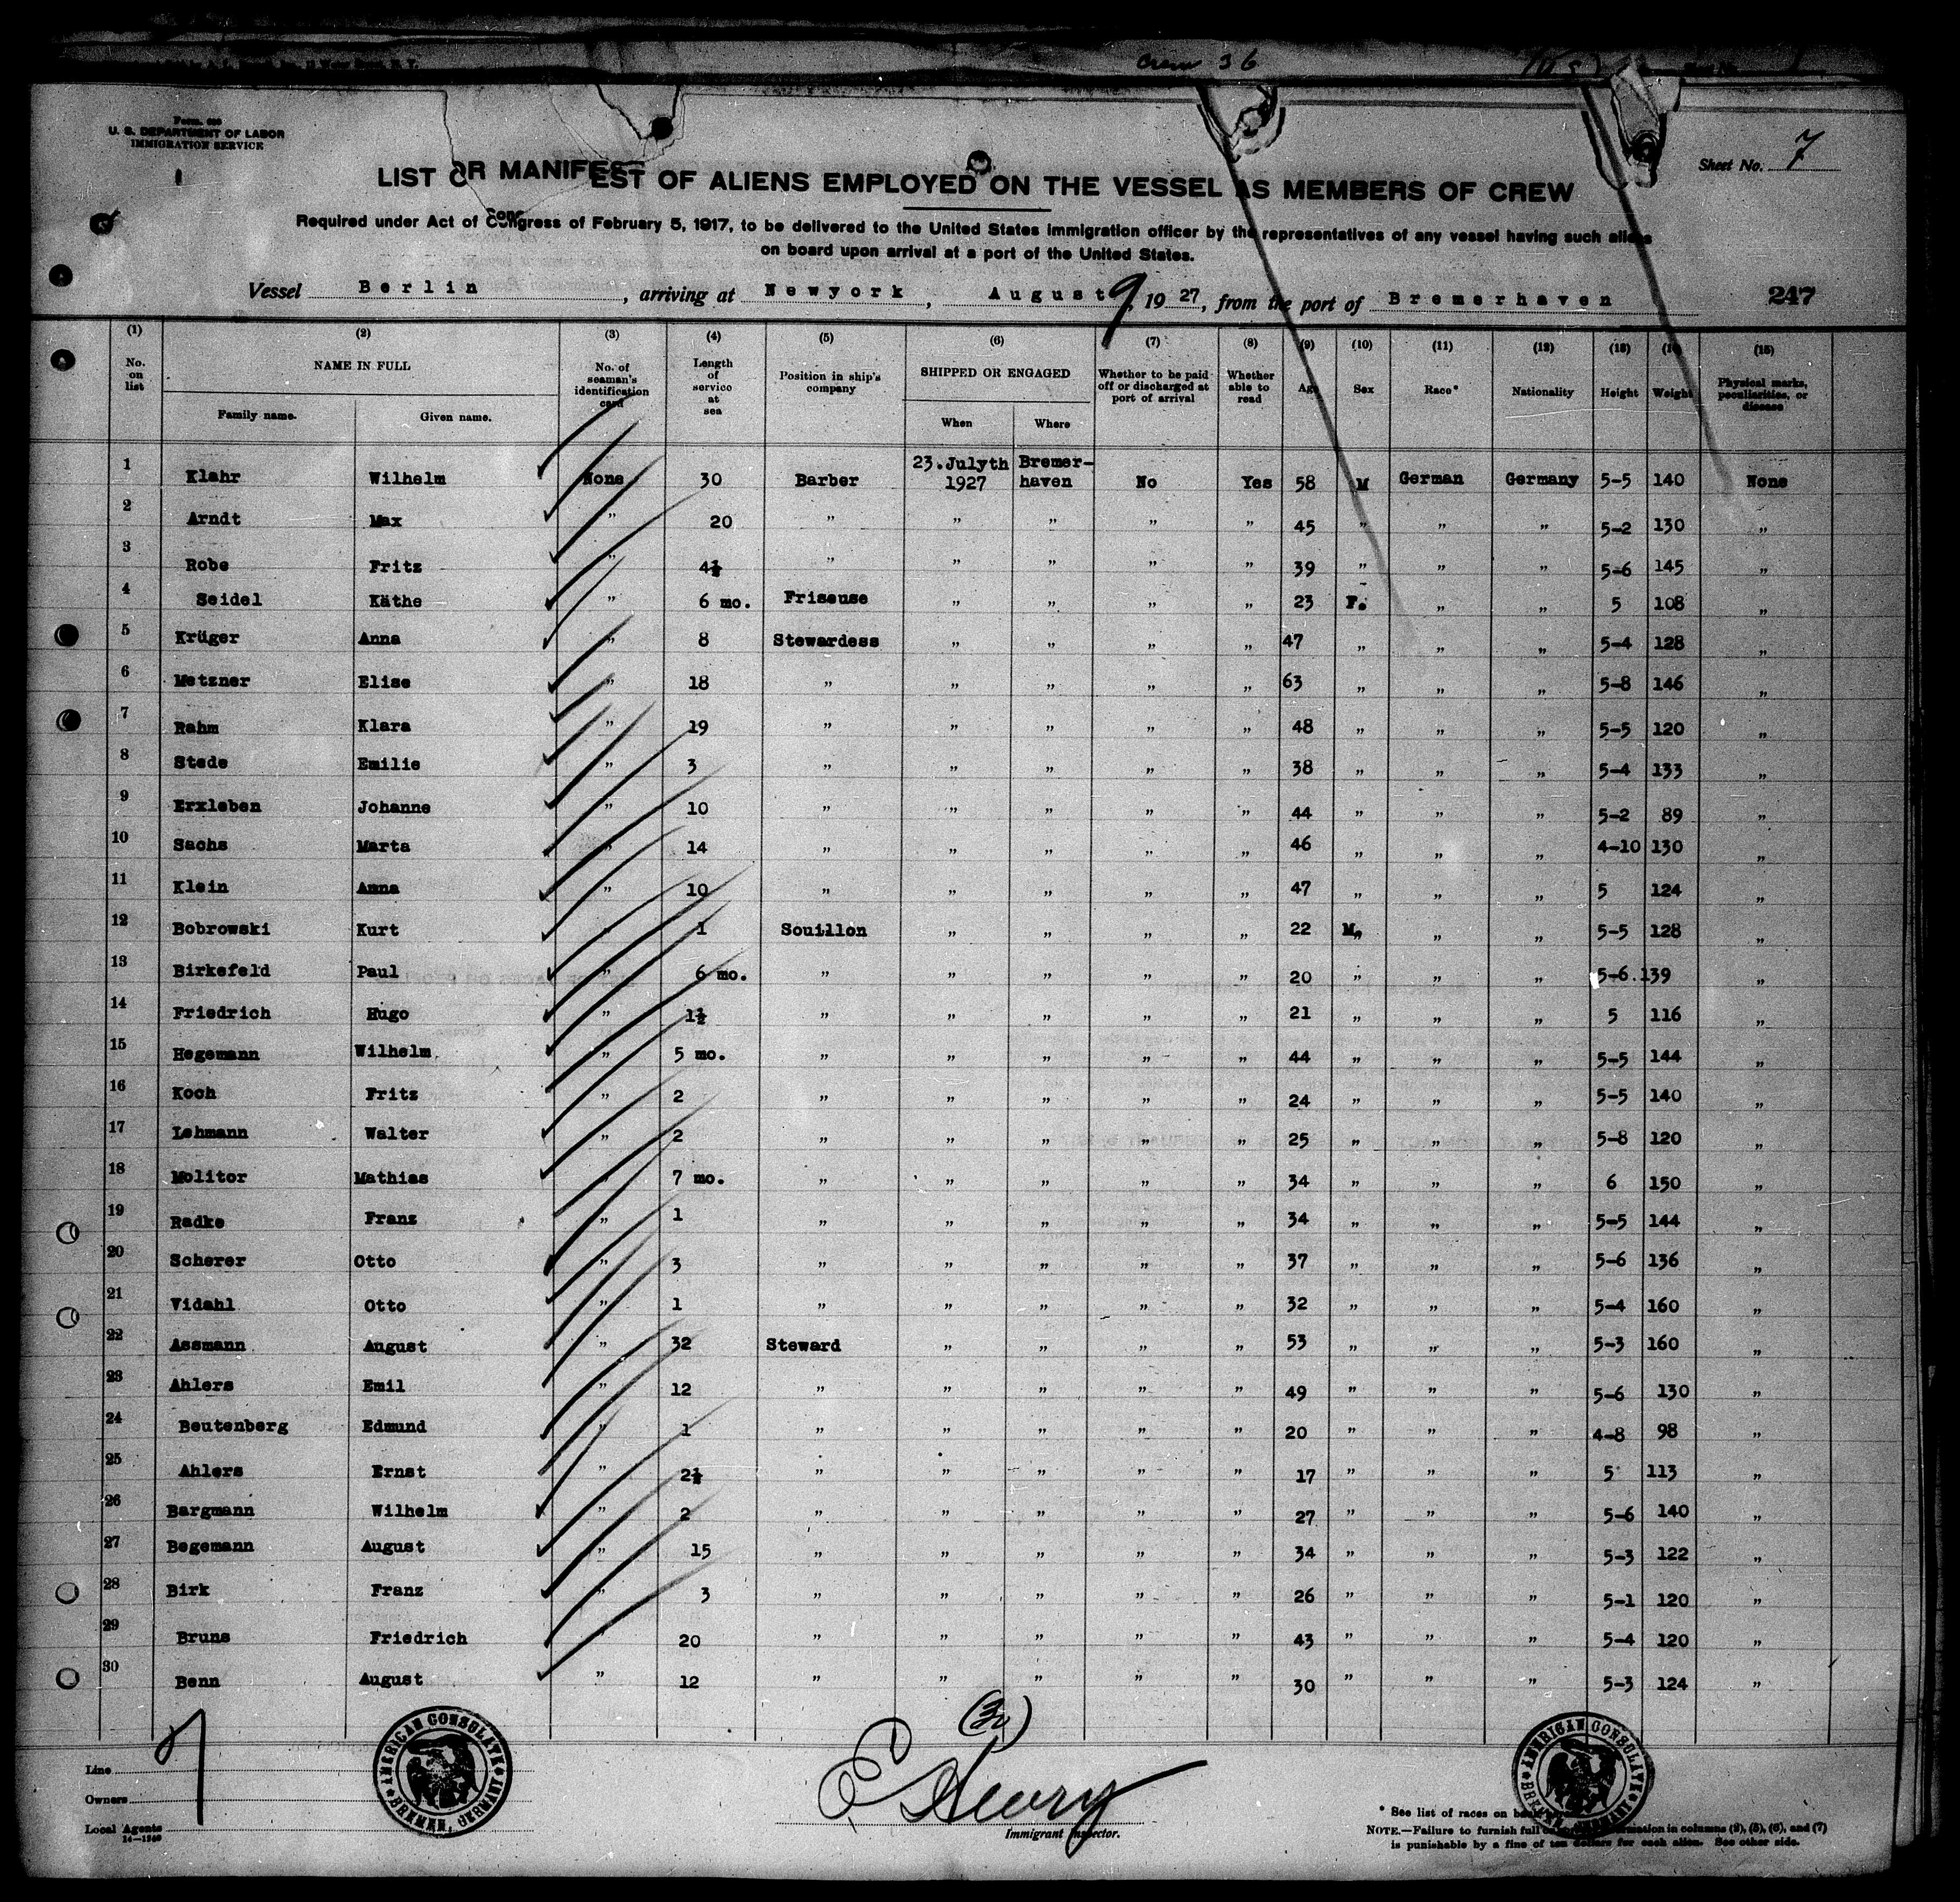 Crew 36
U. S. DEPARTMENT OF LABOR
IMMIGRATION SERVICE
Sheet No. 7
LIST OR MANIFEST OF ALIENS EMPLOYED ON THE VESSEL AS MEMBERS OF CREW
Required under Act of Congress of February 5, 1917, to be delivered to the United States immigration officer by the representatives of any vessel having such aliens
on board upon arrival at a port of the United States.
Vessel Berlin, arriving at Newyork, August 9, 1927, from the port of Bremerhaven 247
(1) (2) (3) (4) (5) (6) (7) (8) (9) (10) (11) (12) (13) (14) (15)
No. on list NAME IN FULL No. of seaman's identification card Length of service at sea Position in ship's company SHIPPED OR ENGAGED Whether to be paid off or discharged at port of arrival Whether able to read Age Sex Race* Nationality Height Weight Physical marks, peculiarities, or disease
Family name. Given name. When Where
1 Klahr Wilhelm None 30 Barber 23.Julyth 1927 Bremer-haven No Yes 58 M German Germany 5-5 140 None
2 Arndt Max " 20 " " " " " 45 " " " 5-2 130 "
3 Robe Fritz " 4½ " " " " " 39 " " " 5-6 145 "
4 Seidel Käthe " 6 mo. Friseuse " " " " 23 F. " " 5 108 "
5 Krüger Anna " 8 Stewardess " " " " 47 " " " 5-4 128 "
6 Metzner Elise " 18 " " " " " 63 " " " 5-8 146 "
7 Rahm Klara " 19 " " " " " 48 " " " 5-5 120 "
8 Stede Emilie " 3 " " " " " 38 " " " 5-4 133 "
9 Erxleben Johanne " 10 " " " " " 44 " " " 5-2 89 "
10 Sachs Marta " 14 " " " " " 46 " " " 4-10 130 "
11 Klein Anna " 10 " " " " " 47 " " " 5 124 "
12 Bobrowski Kurt " 1 Souillon " " " " 22 M. " " 5-5 128 "
13 Birkefeld Paul " 6 mo. " " " " " 20 " " " 5-6. 139 "
14 Friedrich Hugo " 1½ " " " " " 21 " " " 5 116 "
15 Hegemann Wilhelm. " 5 mo. " " " " " 44 " " " 5-5 144 "
16 Koch Fritz " 2 " " " " " 24 " " " 5-5 140 "
17 Lehmann Walter " 2 " " " " " 25 " " " 5-8 120 "
18 Molitor Mathias 7 mo. " " " " " 34 " " " 6 150 "
19 Radke Franz " 1 " " " " " 34 " " " 5-5 144 "
20 Scherer Otto " 3 " " " " " 37 " " " 5-6 136 "
21 Vidahl Otto " 1 " " " " " 32 " " " 5-4 160 "
22 Assmann August " 32 Steward " " " " 53 " " " 5-3 160 "
23 Ahlers Emil " 12 " " " " " 49 " " " 5-6 130 "
24 Beutenberg Edmund " 1 " " " " " 20 " " " 4-8 98 "
25 Ahlers Ernst " 2½ " " " " " 17 " " " 5 113 "
26 Bargmann Wilhelm " 2 " " " " " 27 " " " 5-6 140 "
27 Begemann August " 15 " " " " " 34 " " " 5-3 122 "
28 Birk Franz " 3 " " " " " 26 " " " 5-1 120 "
29 Bruns Friedrich " 20 " " " " " 43 " " " 5-4 120 "
30 Benn August " 12 " " " " " 30 " " " 5-3 124 "
(30)
Line
Owners
Local Agents
14-1240
AMERICAN CONSULATE BREMEN, GERMANY
Henry
Immigrant Inspector.
AMERICAN CONSULATE
* See list of races on back
NOTE.—Failure to furnish full information in columns (2), (5), (6), and (7)
is punishable by a fine of ten dollars for each alien. See other side.